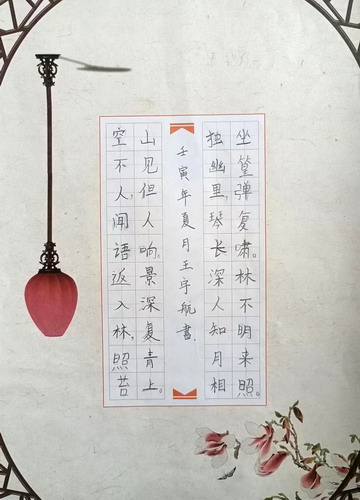 空山
不见
人,但
闻人
语响。
返景
入深
林,复
照青
苔上。
壬寅年夏月王宇航書.
独坐
幽篁
里,弹
琴复
长啸。
深林
人不
知明
月来
相照。